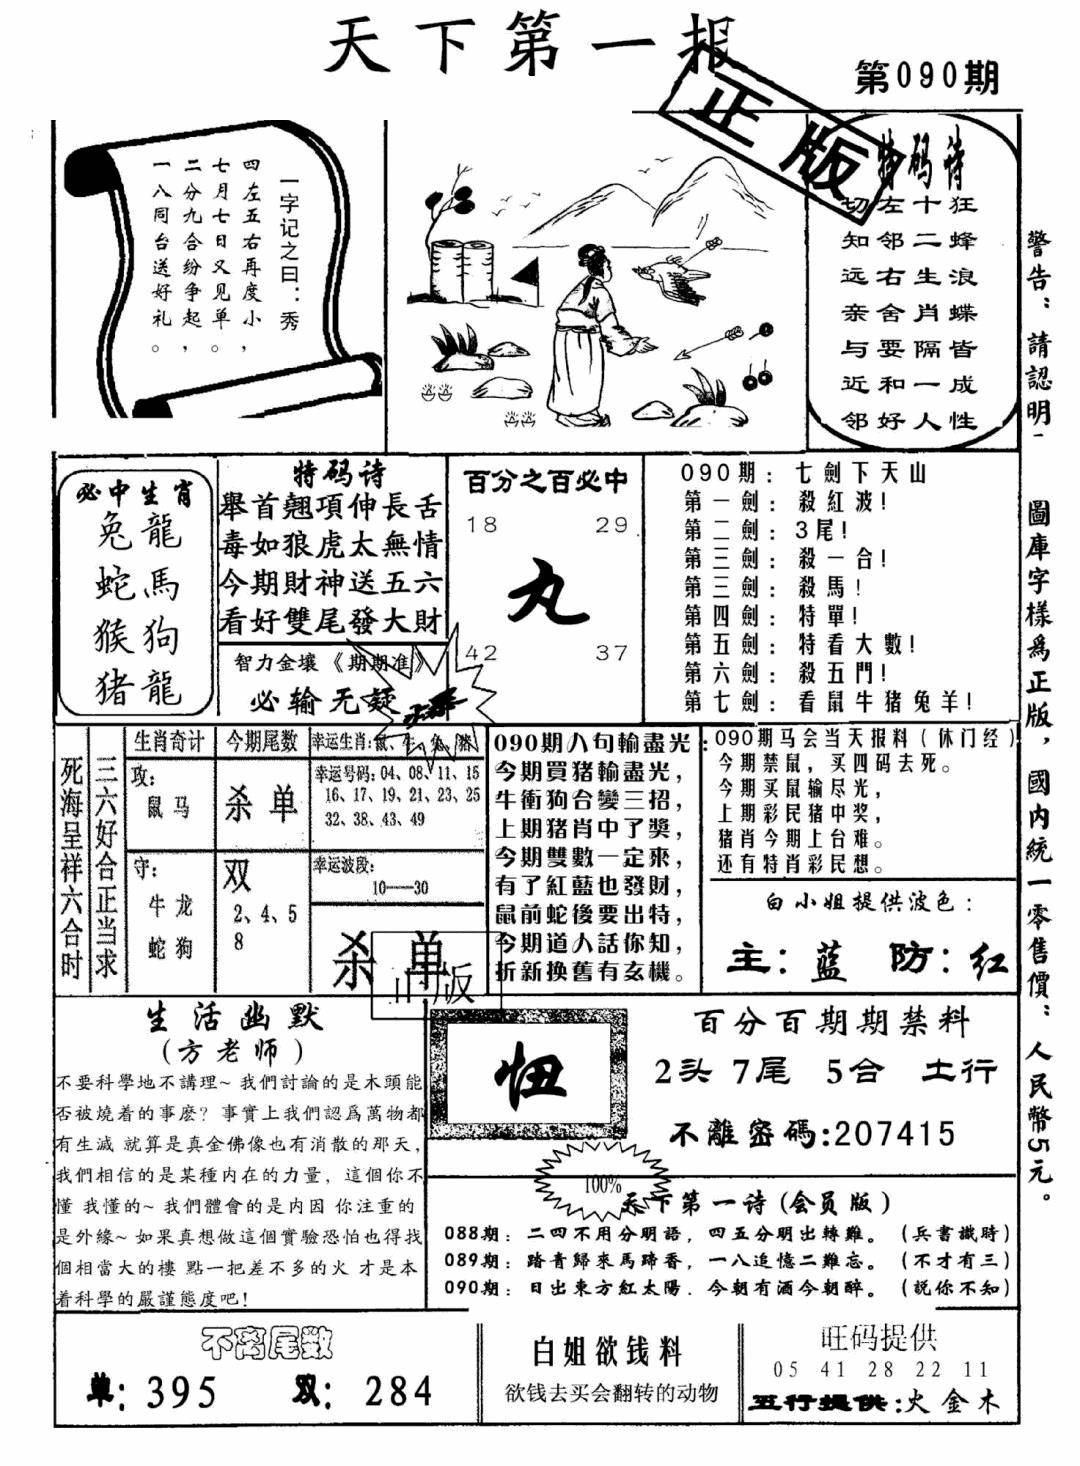 天下第一报
第090期
正版
一字记之曰：秀
四左五右再度小，
七月七日又见单。
二分九合纷争起，
一八同台送好礼。
特码诗
狂蜂浪蝶皆成性
十二生肖隔一人
左邻右舍要和好
切知远亲与近邻
警告：請認明
圖庫字樣爲正版，國内統一零售價：人民幣5元。
必中生肖
兔龍
蛇馬
猴狗
猪龍
特码诗
舉首翹項伸長舌
毒如狼虎太無情
今期財神送五六
看好雙尾發大財
智力金壤《期期准》
必输无疑
百分之百必中
18 29
丸
42 37
090期：七劍下天山
第一劍：殺紅波！
第二劍：3尾！
第三劍：殺一合！
第三劍：殺馬！
第四劍：特單！
第五劍：特看大數！
第六劍：殺五門！
第七劍：看鼠牛猪兔羊！
三六好合正当求
死海呈祥六合时
生肖奇计
攻：
鼠马
守：
牛龙
蛇狗
今期尾数
杀单
双
2、4、5
8
幸运生肖：鼠、牛、兔、猪
幸运号码：04、08、11、15
16、17、19、21、23、25
32、38、43、49
幸运波段：
10——30
杀单
正版
090期八句輸盡光：
今期買猪輸盡光，
牛衝狗合變三招，
上期猪肖中了獎，
今期雙數一定來，
有了紅藍也發財，
鼠前蛇後要出特，
今期道人話你知，
折新换舊有玄機。
090期马会当天报料（休门经）
今期禁鼠，买四码去死。
今期买鼠输尽光，
上期彩民猪中奖，
猪肖今期上台难。
还有特肖彩民想。
白小姐提供波色：
主：蓝 防：红
生活幽默
（方老师）
不要科學地不講理~ 我們討論的是木頭能
否被燒着的事麽？ 事實上我們認爲萬物都
有生滅 就算是真金佛像也有消散的那天，
我們相信的是某種内在的力量，這個你不
懂 我懂的~ 我們體會的是内因 你注重的
是外緣~ 如果真想做這個實驗恐怕也得找
個相當大的樓 點一把差不多的火 才是本
着科學的嚴謹態度吧！
忸
百分百期期禁料
2头 7尾 5合 土行
不離密碼：207415
100%
天下第一诗（会员版）
088期：二四不用分明語，四五分明出轉難。（兵書讖時）
089期：踏青歸來馬蹄香，一八追憶二難忘。（不才有三）
090期：日出東方紅太陽．今朝有酒今朝醉。（説你不知）
不离尾数
单：395 双：284
白姐欲钱料
欲钱去买会翻转的动物
旺码提供
05 41 28 22 11
五行提供：火金木